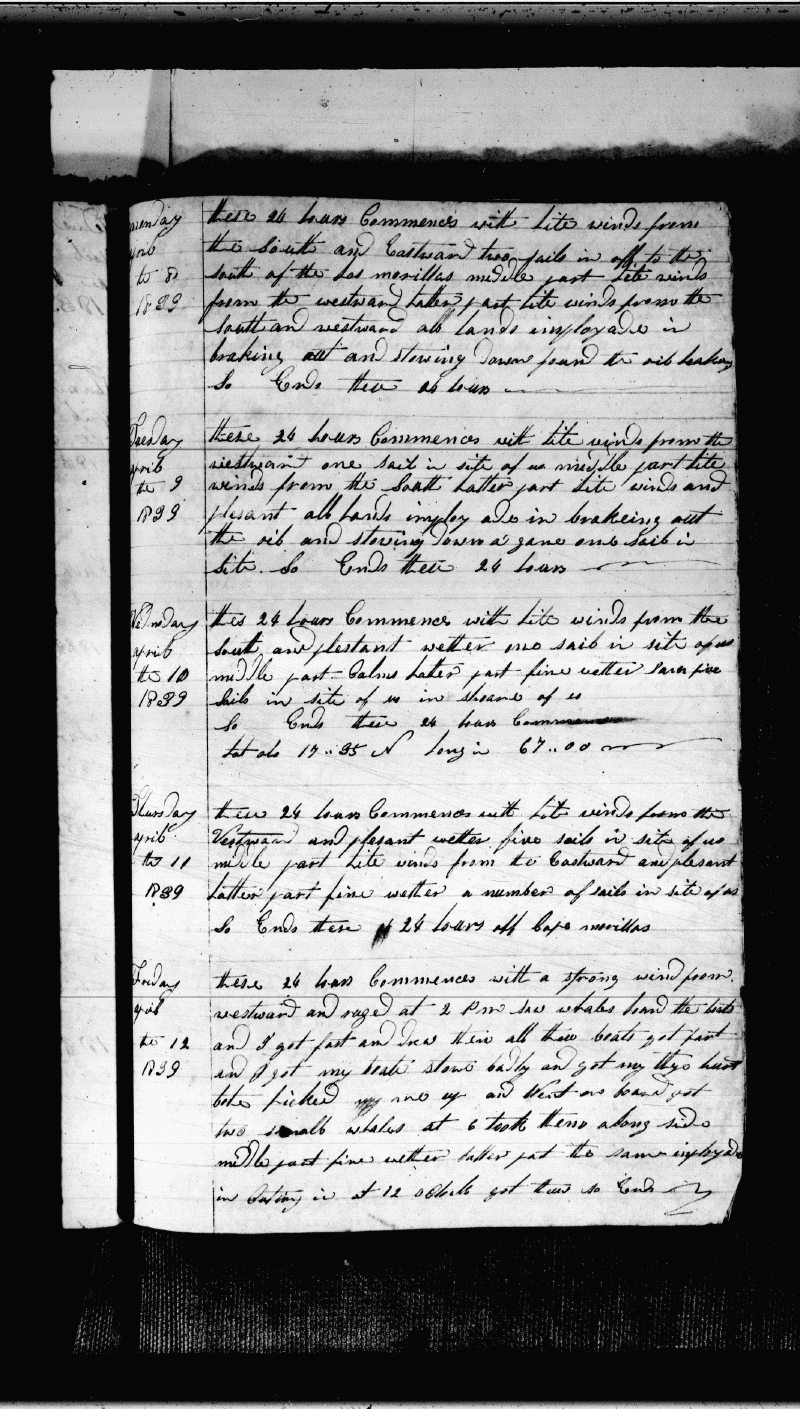 monday these 24 hours Commences with lite winds from
april the South and Eastward two sails in off to the
the 8 south of the Los morillas middle part lite winds
1839 from the westward latter part lite winds from the
South and westward all hands imployade in
braking out and stowing down found the oil leaking
So Ends these 24 hours
Tuesday these 24 hours Commences with lite winds from the
april westward one sail in site of us middle part lite
the 9 winds from the South Latter part lite winds and
1839 plesant all hands imploy ade in brakeing out
the oil and stowing down a gane one sail in
site. So Ends these 24 hours
Wednsday thes 24 hours Commences with lite winds from the
april South and plesant wether one sail in site of us
the 10 middle part Calms Later part fine wether saw five
1839 Sails in site of us in shoare of us
So Ends these 24 hours Commences
Lat obs 17..35 N long in 67..00
Thursday these 24 hours Commences with lite winds from the
april Westward and plesant wether five sails in site of us
the 11 middle part lite winds from the Eastward and plesant
1839 latter part fine wether a number of sails in site of us
So Ends these 24 hours off Cape morillas
Friday these 24 hours Commences with a strong wind from
april westward and ruged at 2 Pm saw whales the bots
the 12 and I got fast and them all three boats got fast
1839 and I got my boate stove badly and got my thye hurt
picked my me up and Went on board got
two small whales at 6 took them along side
middle part fine wether latter part the same imployade
in Cuting in at 12 oClock got threw so Ends